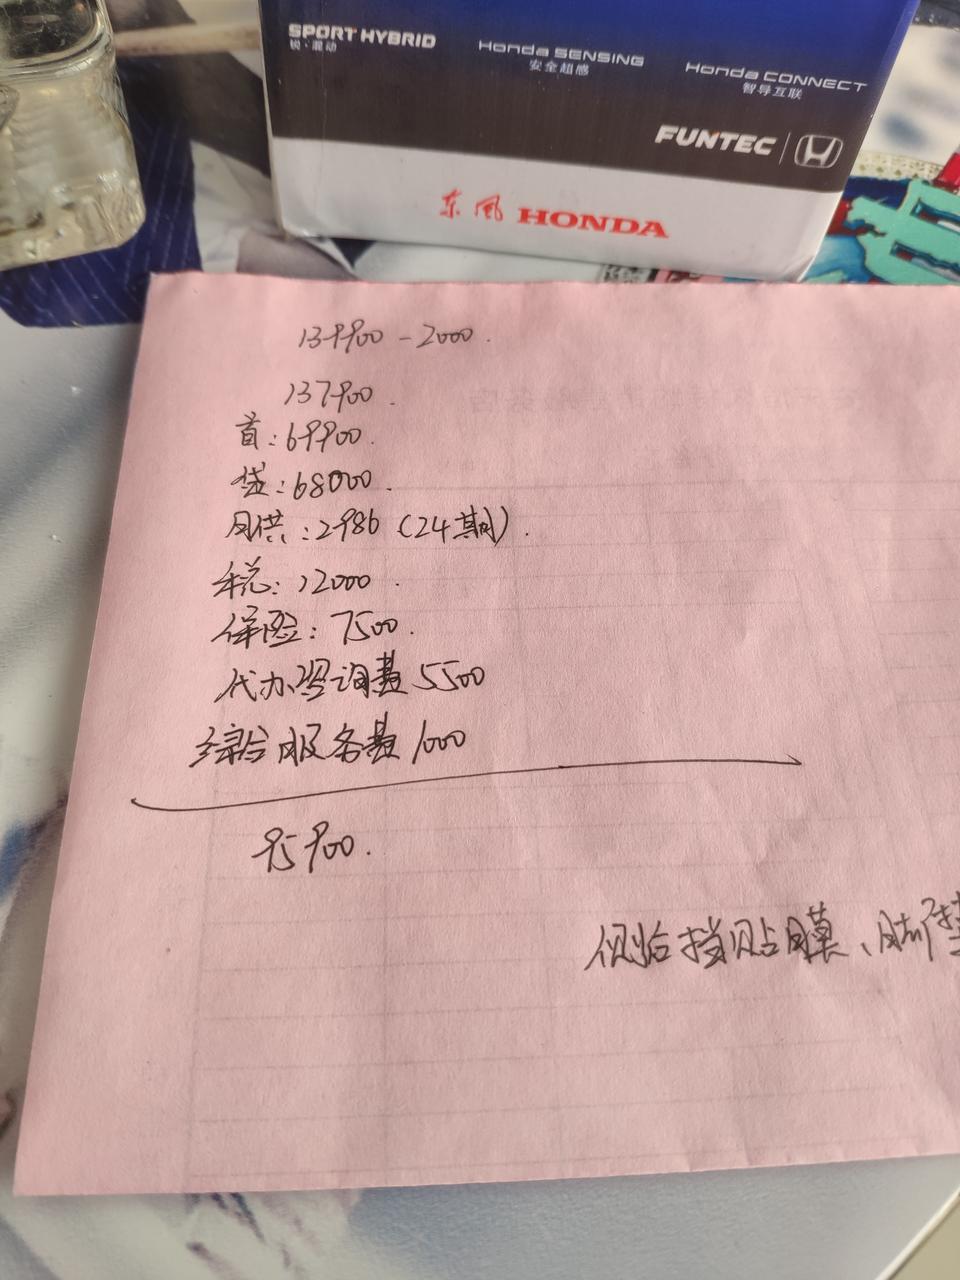 SPORT HYBRID
锐·混动
Honda SENSING
安全超感
Honda CONNECT
智导互联
FUNTEC
东风 HONDA
139900-2000.
137900.
首:69900.
贷:68000.
月供:2986(24期).
税:12000.
保险:7500.
代办咨询费5500
综合服务费1000
95900.
侧后挡贴膜、脚垫